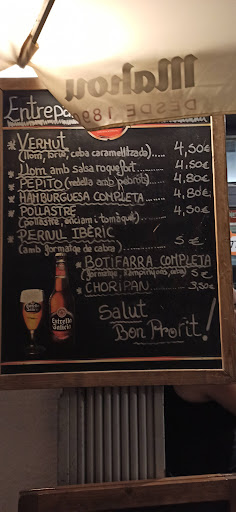 Mahou
DESDE 189
Entrepa
- VERMUT
(llom, brie, ceba caramelitzada)..... 4,50€
- Llom amb salsa roquefort ........ 4,50€
- PEPITO (vedella amb pebrots) ..... 4,80€
- HAMBURGUESA COMPLETA ...... 4,80€
- POLLASTRE ........ 4,50€
(pollastre, enciam i tomàquet)
- PERNIL IBÈRIC
(amb formatge de cabra) ........ 5€
- BOTIFARRA COMPLETA
(formatge, xampinyons, ceba) 5€
- CHORIPAN.......... 3,50€
Salut
Bon Profit!
Estrella
Galicia